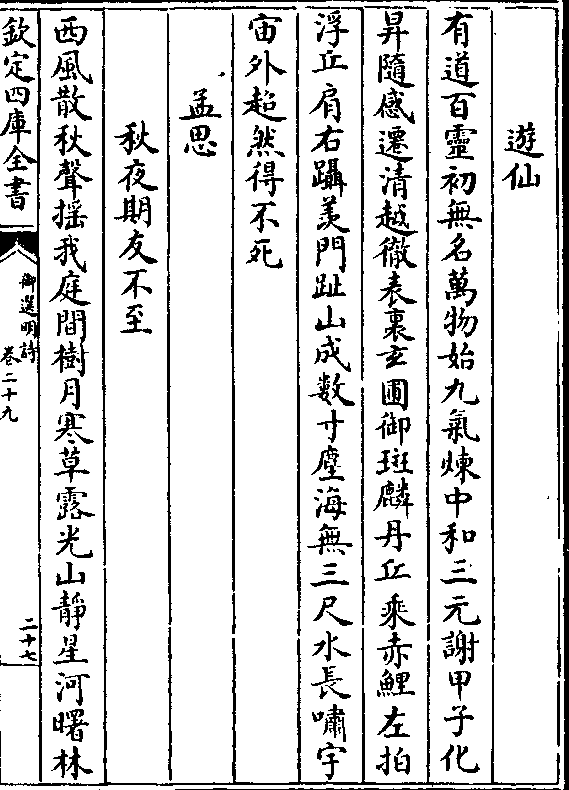 遊仙
有道百靈初無名萬物始九氣煉中和三元謝甲子化
昇隨感遷清越徹表裏玄圃御斑麟丹丘乘赤鯉左拍
浮丘肩右躡羨門趾山成數寸塵海無三尺水長嘯宇
宙外超然得不死
孟思
秋夜期友不至
西風散秋聲搖我庭間樹月寒草露光山靜星河曙林
欽定四庫全書
御選明詩
卷二十九
二十七